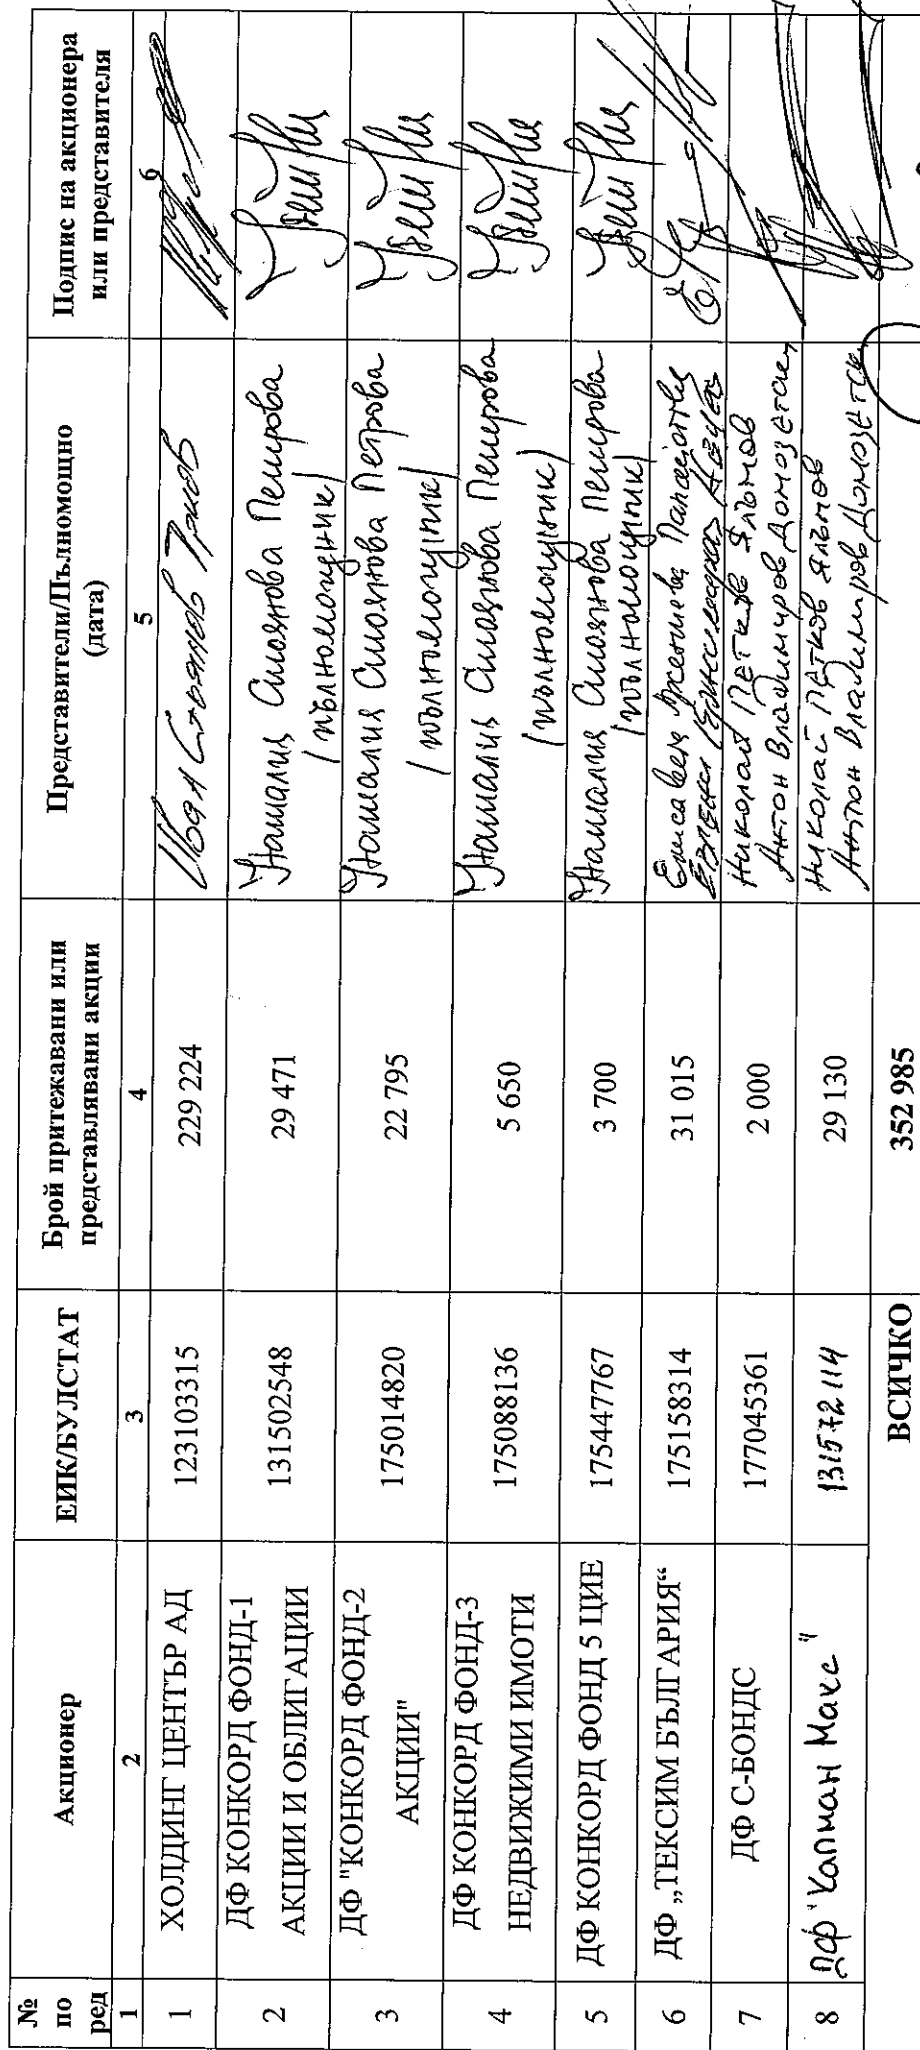 № по ред | Акционер | ЕИК/БУЛСТАТ | Брой притежавани или представлявани акции | Представители/Пълномощно (дата) | Подпис на акционера или представителя
1 | 2 | 3 | 4 | 5 | 6
1 | ХОЛДИНГ ЦЕНТЪР АД | 123103315 | 229 224 | Стоянов
2 | ДФ КОНКОРД ФОНД-1 АКЦИИ И ОБЛИГАЦИИ | 131502548 | 29 471 | Наталия Стоянова Петрова /пълномощник/
3 | ДФ "КОНКОРД ФОНД-2 АКЦИИ" | 175014820 | 22 795 | Наталия Стоянова Петрова /пълномощник/
4 | ДФ КОНКОРД ФОНД-3 НЕДВИЖИМИ ИМОТИ | 175088136 | 5 650 | Наталия Стоянова Петрова /пълномощник/
5 | ДФ КОНКОРД ФОНД 5 ЦИЕ | 175447767 | 3 700 | Наталия Стоянова Петрова /пълномощник/
6 | ДФ „ТЕКСИМ БЪЛГАРИЯ“ | 175158314 | 31 015 | Елисавета
7 | ДФ С-БОНДС | 177045361 | 2 000 | Николай Петков Ялъмов Антон Владимиров Домозетски
8 | ДФ "Капман Макс" | 131572114 | 29 130 | Николай Петков Ялъмов Антон Владимиров Домозетски
ВСИЧКО 352 985